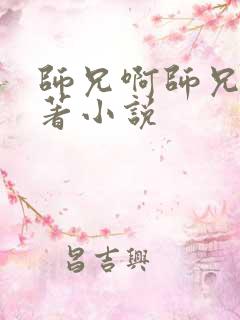 師兄啊師兄
著小説
昌吉興